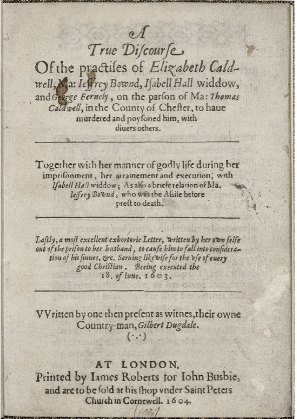 A
True Discourse
Of the practises of Elizabeth Cald-
well, Ma: Ieffrey Bownd, Isabell Hall widdow,
and George Fernely, on the parson of Ma: Thomas
Caldwell, in the County of Chester, to haue
murdered and poysoned him, with
diuers others.
Together with her manner of godly life during her
imprisonment, her arrainement and execution, with
Isabell Hall widdow; As also a briefe relation of Ma.
Ieffrey Bownd, who was the Assise before
prest to death.
Lastly, a most excellent exhortorie Letter, written by her own selfe
out of the prison to her husband, to cause him to fall into considera-
tion of his sinnes, &c. Seruing likewise for the vse of euery
good Christian. Beeing executed the
18. of Iune. 1603.
VVritten by one then present as witnes, their owne
Country-man, Gilbert Dugdale.
(∴)
AT LONDON,
Printed by Iames Roberts for Iohn Busbie,
and are to be sold at his shop vnder Saint Peters
Church in Cornewell. 1604.